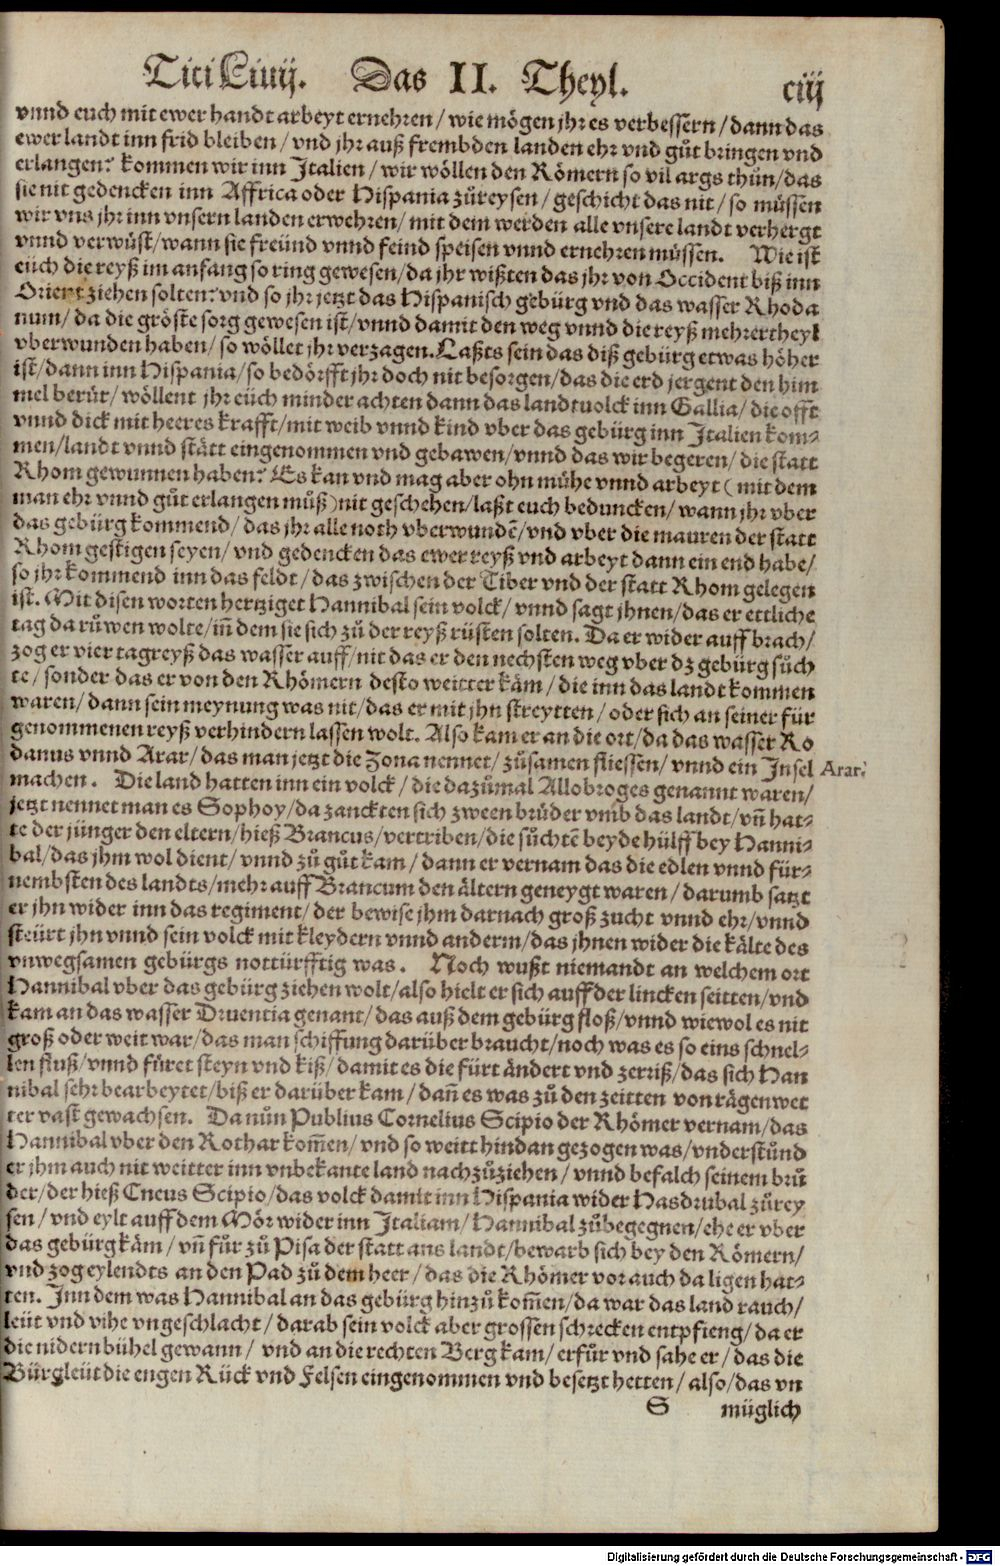 Titi Liuij. Das II. Theyl. ciij
vnnd euch mit ewer handt arbeyt ernehren / wie mögen jhr es verbessern / dann das
ewer landt inn frid bleiben / vnd jhr auß frembden landen ehr vnd gůt bringen vnd
erlangen? kommen wir inn Italien / wir wöllen den Römern so vil args thůn / das
sie nit gedencken inn Affrica oder Hispania zůreysen / geschicht das nit / so müssen
wir vns jhr inn vnsern landen erwehren / mit dem werden alle vnsere landt verhergt
vnnd verwüst / wann sie freünd vnnd feind speisen vnnd ernehren müssen. Wie ist
euch die reyß im anfang so ring gewesen / da jhr wißten das jhr von Occident biß inn
Orient ziehen solten? vnd so jhr jetzt das Hispanisch gebürg vnd das wasser Rhoda
num / da die gröste sorg gewesen ist / vnnd damit den weg vnnd die reyß mehrertheyl
vberwunden haben / so wöllet jhr verzagen. Laßts sein das diß gebürg etwas höher
ist / dann inn Hispania / so bedörfft jhr doch nit besorgen / das die erd jergent den him
mel berür / wöllent jhr euch minder achten dann das landtuolck inn Gallia / die offt
vnnd dick mit heeres krafft / mit weib vnnd kind vber das gebürg inn Italien kom⸗
men / landt vnnd stätt eingenommen vnd gebawen / vnnd das wir begeren / die statt
Rhom gewunnen haben? Es kan vnd mag aber ohn mühe vnnd arbeyt ( mit dem
man ehr vnnd gůt erlangen můß ) nit geschehen / laßt euch beduncken / wann jhr vber
das gebürg kommend / das jhr alle noth vberwundē / vnd vber die mauren der statt
Rhom gestigen seyen / vnd gedencken das ewer reyß vnd arbeyt dann ein end habe /
so jhr kommend inn das feldt / das zwischen der Tiber vnd der statt Rhom gelegen
ist. Mit disen worten hertziget Hannibal sein volck / vnnd sagt jhnen / das er ettliche
tag da růwen wolte / iñ dem sie sich zů der reyß rüsten solten. Da er wider auff brach /
zog er vier tagreyß das wasser auff / nit das er den nechsten weg vber dz gebürg sůch
te / sonder das er von den Rhömern desto weitter käm / die inn das landt kommen
waren / dann sein meynung was nit / das er mit jhn streytten / oder sich an seiner für
genommenen reyß verhindern lassen wolt. Also kam er an die ort / da das wasser Ro
danus vnnd Arar / das man jetzt die Zona nennet / zůsamen fliessen / vnnd ein Insel Arar.
machen. Die land hatten inn ein volck / die dazůmal Allobroges genannt waren /
jetzt nennet man es Sophoy / da zanckten sich zween brüder vmb das landt / vñ hat⸗
te der jünger den eltern / hieß Brancus / vertriben / die sůchtē beyde hülff bey Hanni⸗
bal / das jhm wol dient / vnnd zů gůt kam / dann er vernam das die edlen vnnd für⸗
nembsten des landts / mehr auff Brancum den ältern geneygt waren / darumb satzt
er jhn wider inn das regiment / der bewise jhm darnach groß zucht vnnd ehr / vnnd
steürt jhn vnnd sein volck mit kleydern vnnd anderm / das jhnen wider die kälte des
vnwegsamen gebürgs nottürfftig was. Noch wußt niemandt an welchem ort
Hannibal vber das gebürg ziehen wolt / also hielt er sich auff der lincken seitten / vnd
kam an das wasser Druentia genant / das auß dem gebürg floß / vnnd wiewol es nit
groß oder weit war / das man schiffung darüber braucht / noch was es so eins schnel⸗
len fluß / vnnd füret steyn vnd kiß / damit es die fürt ändert vnd zerriß / das sich Han
nibal sehr bearbeytet / biß er darüber kam / dañ es was zů den zeitten von rägenwet
ter vast gewachsen. Da nůn Publius Cornelius Scipio der Rhömer vernam / das
Hannibal vber den Rothar kom̃en / vnd so weitt hindan gezogen was / vnderstůnd
er jhm auch nit weitter inn vnbekante land nachzůziehen / vnnd befalch seinem brů
der / der hieß Cneus Scipio / das volck damit inn Hispania wider Hasdrubal zůrey
sen / vnd eylt auff dem Mör wider inn Italiam / Hannibal zůbegegnen / ehe er vber
das gebürg käm / vñ fůr zů Pisa der statt ans landt / bewarb sich bey den Römern /
vnd zog eylendts an den Pad zů dem heer / das die Rhömer vor auch da ligen hat⸗
ten. Inn dem was Hannibal an das gebürg hinzů kom̃en / da war das land rauch /
leüt vnd vihe vngeschlacht / darab sein volck aber grossen schrecken entpfieng / da er
die nidern bühel gewann / vnd an die rechten Berg kam / erfůr vnd sahe er / das die
Bürgleüt die engen Rück vnd Felsen eingenommen vnd besetzt hetten / also / das vn
S müglich
Digitalisierung gefördert durch die Deutsche Forschungsgemeinschaft - DFG